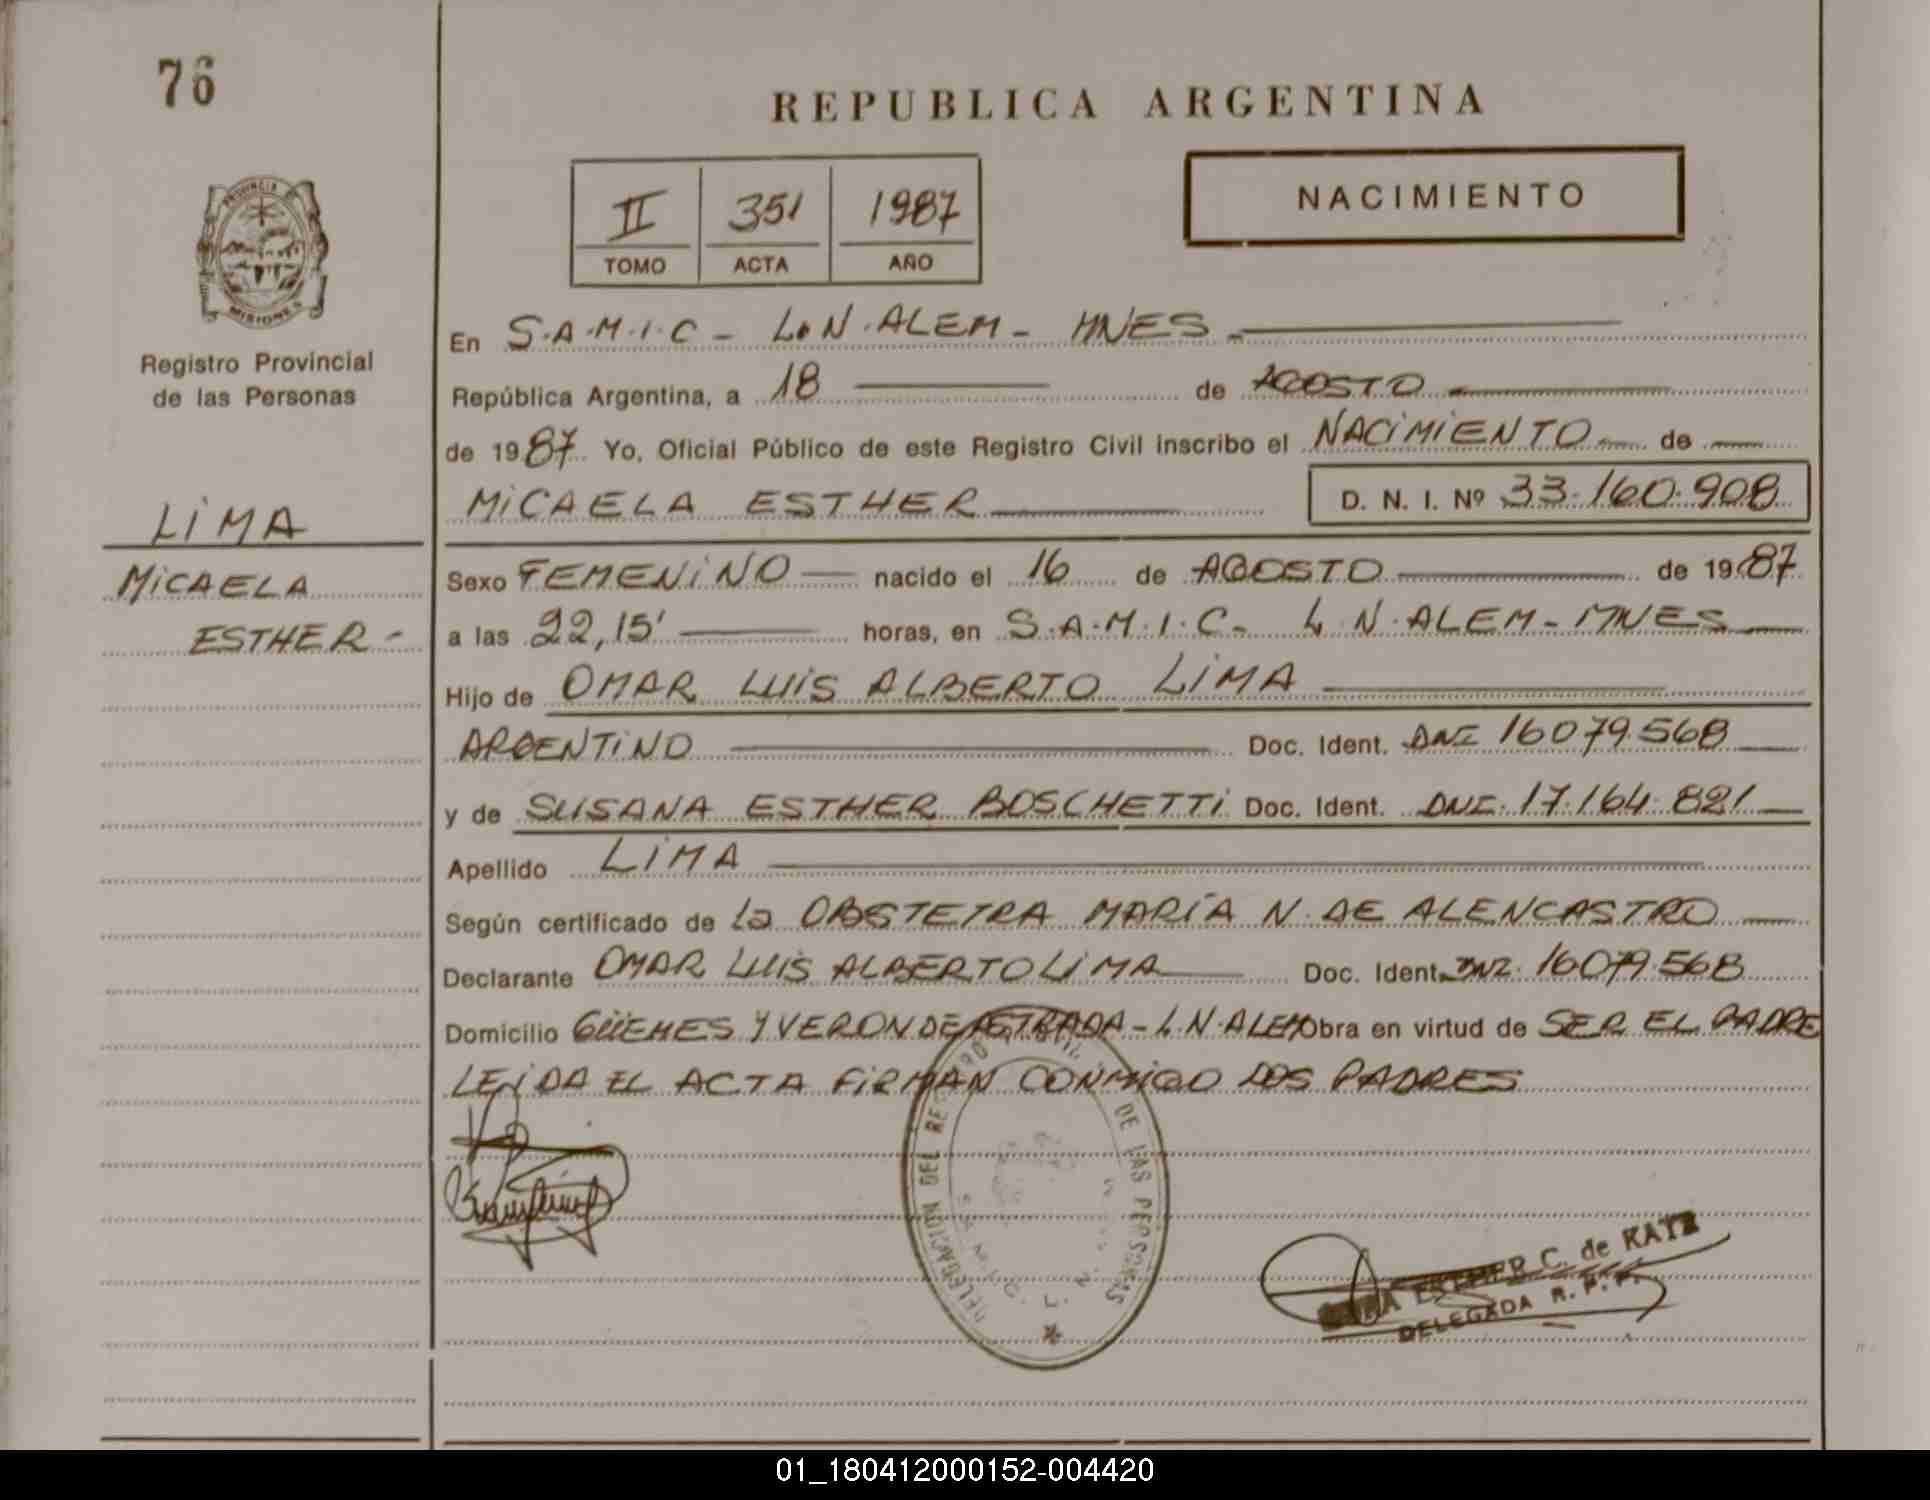 76
REPUBLICA ARGENTINA
II 351 1987
TOMO ACTA AÑO
NACIMIENTO
PROVINCIA DE
MISIONES
Registro Provincial
de las Personas
LIMA
MICAELA
ESTHER-
En S.A.M.I.C - L.N.ALEM - MNES -
República Argentina, a 18 de AGOSTO
de 1987 Yo, Oficial Público de este Registro Civil inscribo el NACIMIENTO de
MICAELA ESTHER D. N. I. Nº 33.160.908
Sexo FEMENINO nacido el 16 de AGOSTO de 1987
a las 22,15' horas, en S.A.M.I.C- L.N.ALEM-MNES
Hijo de OMAR LUIS ALBERTO LIMA
ARGENTINO Doc. Ident. DNI 16079.568
y de SUSANA ESTHER BOSCHETTI Doc. Ident. DNI.17.164.821
Apellido LIMA
Según certificado de La OBSTETRA MARÍA N. DE ALENCASTRO
Declarante OMAR LUIS ALBERTO LIMA Doc. Ident. DNI. 16079.568
Domicilio GÜEMES Y VERON DE ASTRADA - L.N.ALEM Obra en virtud de SER EL PADRE
LEIDA EL ACTA FIRMAN CONMIGO LOS PADRES
DELEGACION DEL REG DE LAS PERSONAS
ESTHER C. de KATZ
DELEGADA R. P. P.
01_180412000152-004420